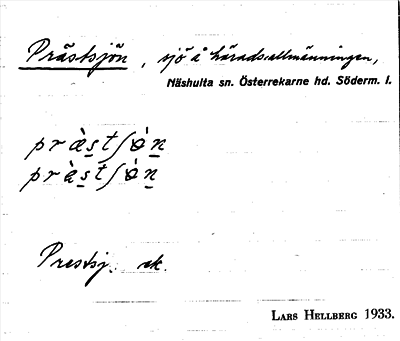 Prästsjön, sjö å häradsallmänningen,
Näshulta sn. Österrekarne hd. Söderm. l.
præ̀stʃø̀n
præ̀stʃø̀n
Prestsj. ek.
Lars Hellberg 1933.